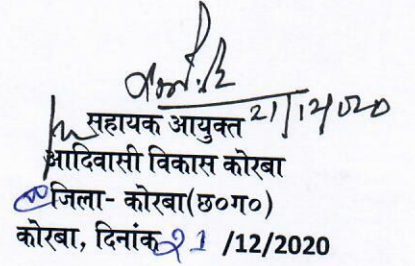 21/12/2020
सहायक आयुक्त
आदिवासी विकास कोरबा
जिला- कोरबा(छ०ग०)
कोरबा, दिनांक 21 /12/2020